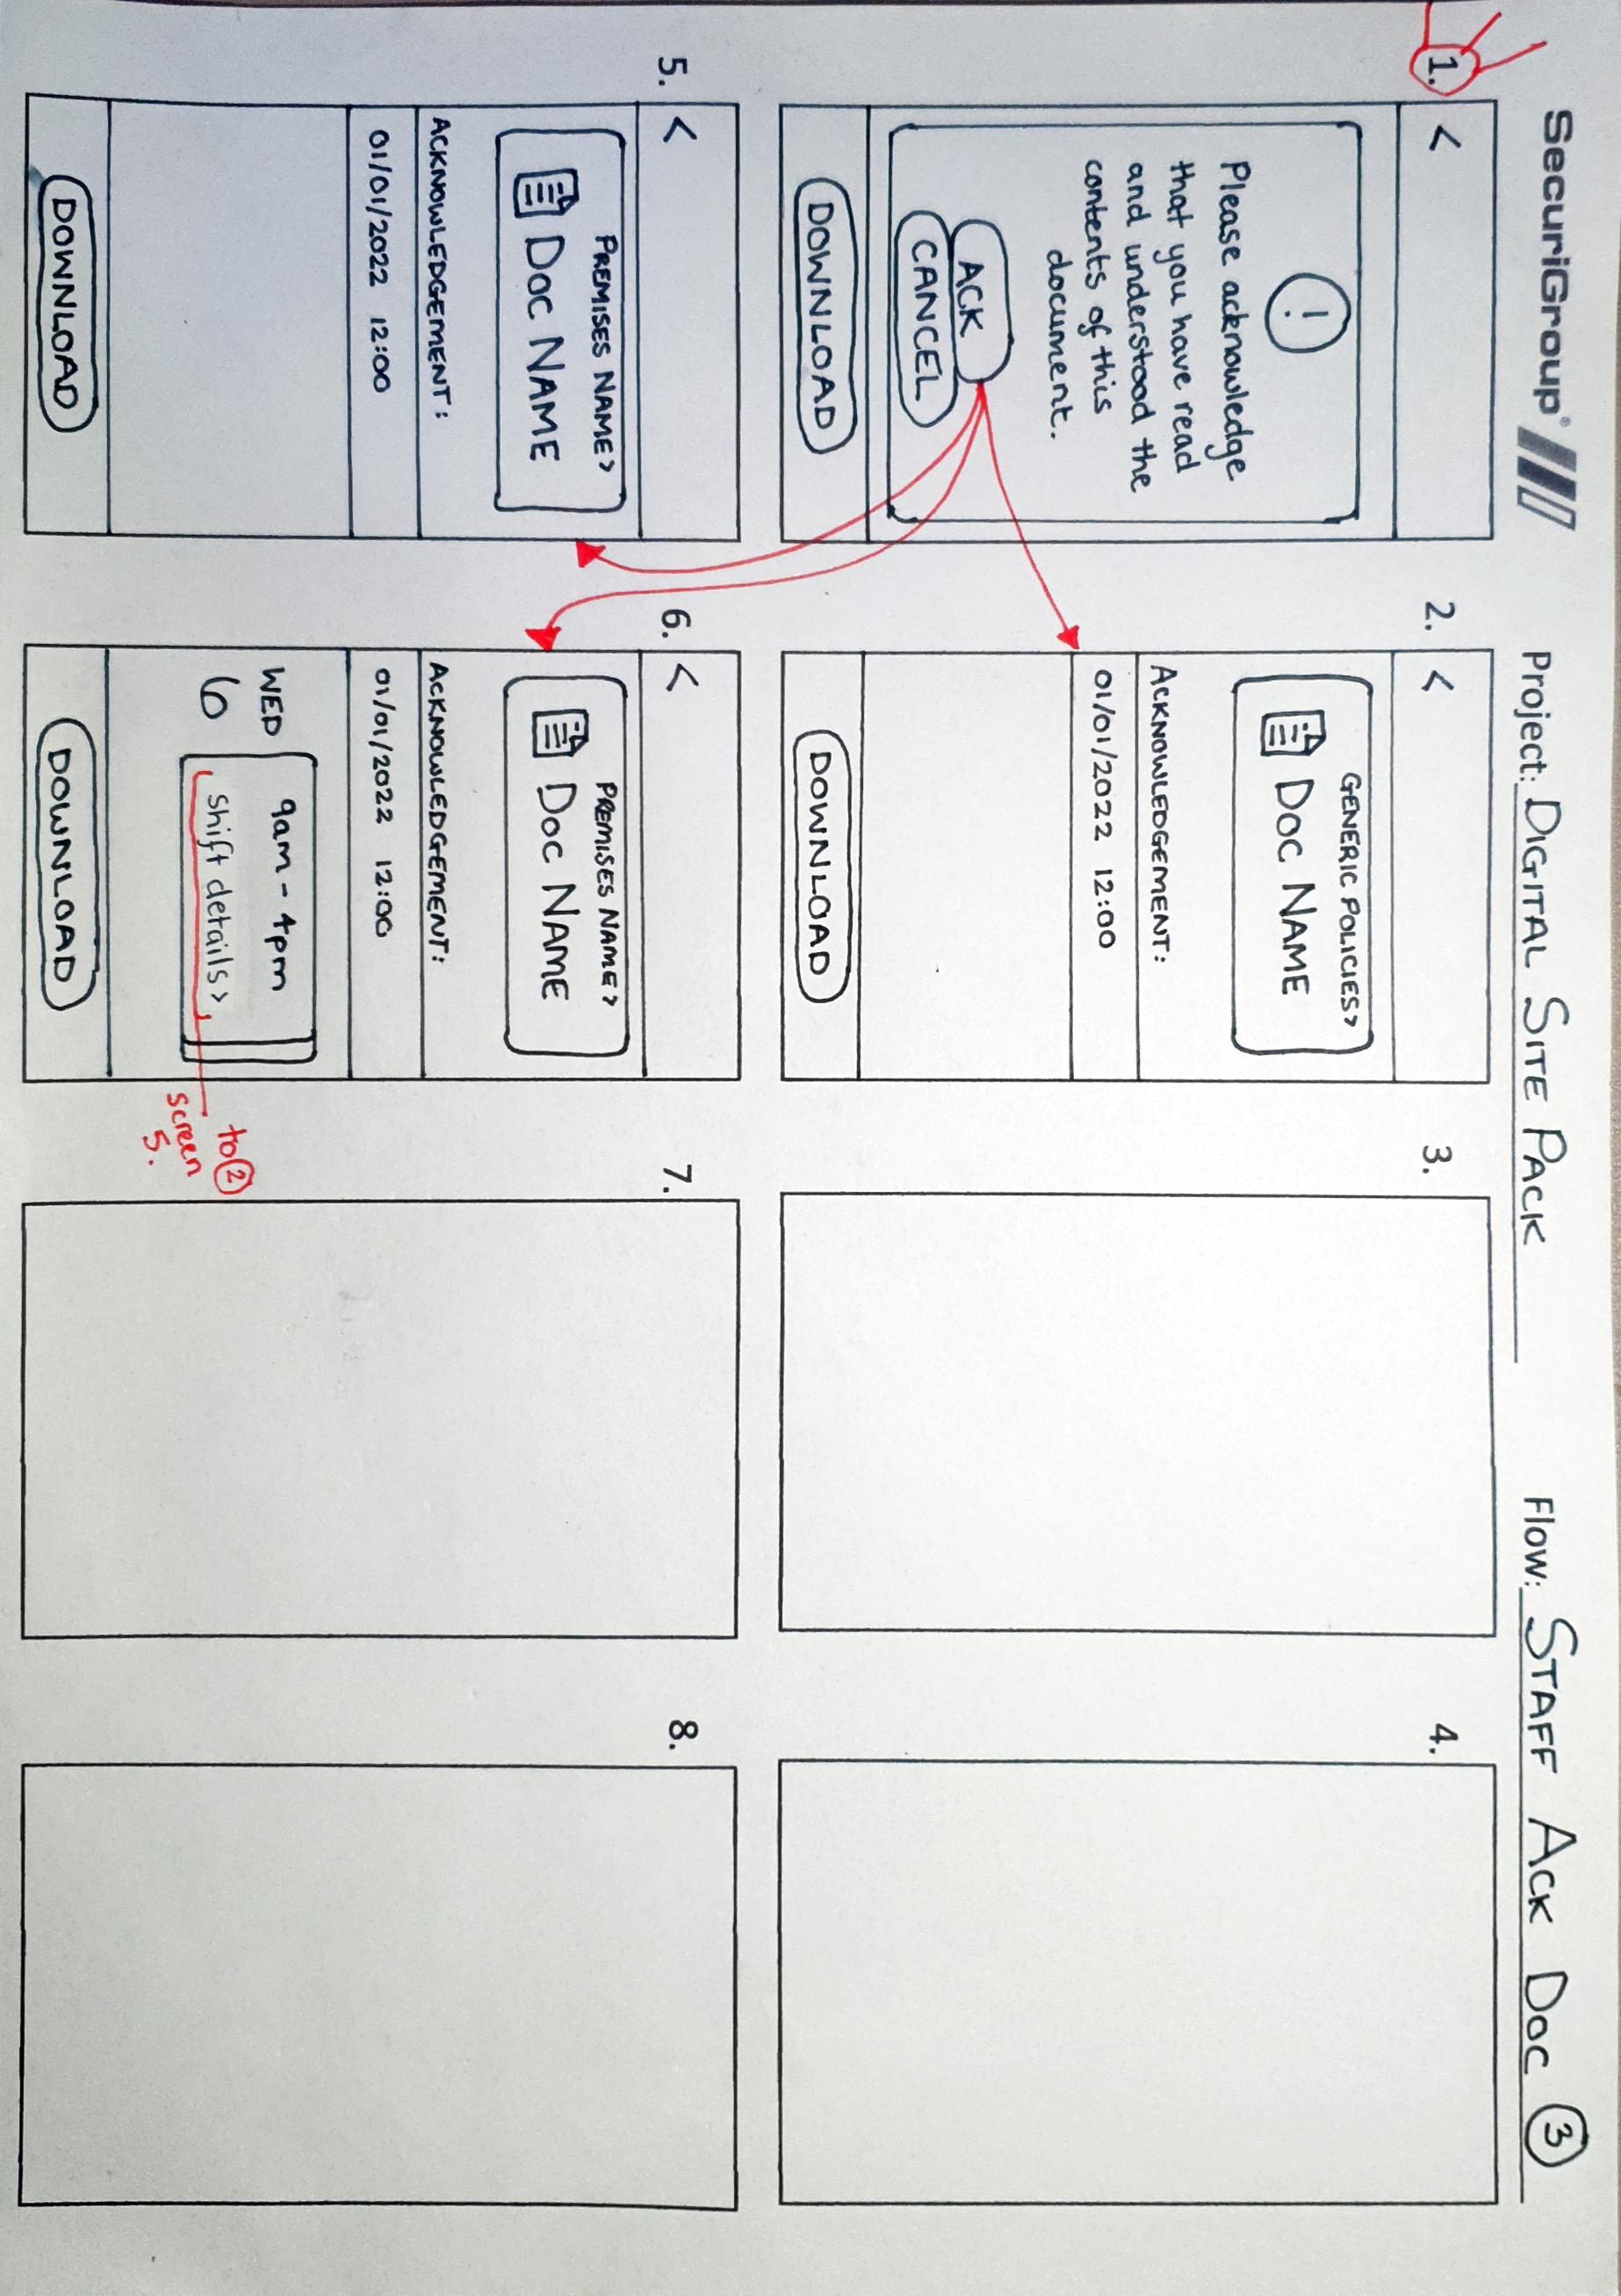 SecuriGroup®
Project: DIGITAL SITE PACK
Flow: STAFF ACK DOC ③
1.
<
!
Please acknowledge
that you have read
and understood the
contents of this
document.
ACK
CANCEL
DOWNLOAD
2.
<
GENERIC POLICIES>
DOC NAME
ACKNOWLEDGEMENT:
01/01/2022 12:00
DOWNLOAD
3.
4.
5.
<
PREMISES NAME>
DOC NAME
ACKNOWLEDGEMENT:
01/01/2022 12:00
DOWNLOAD
6.
<
PREMISES NAME>
DOC NAME
ACKNOWLEDGEMENT:
01/01/2022 12:00
WED
6
9am - 4pm
shift details>
to ②
screen
5.
DOWNLOAD
7.
8.